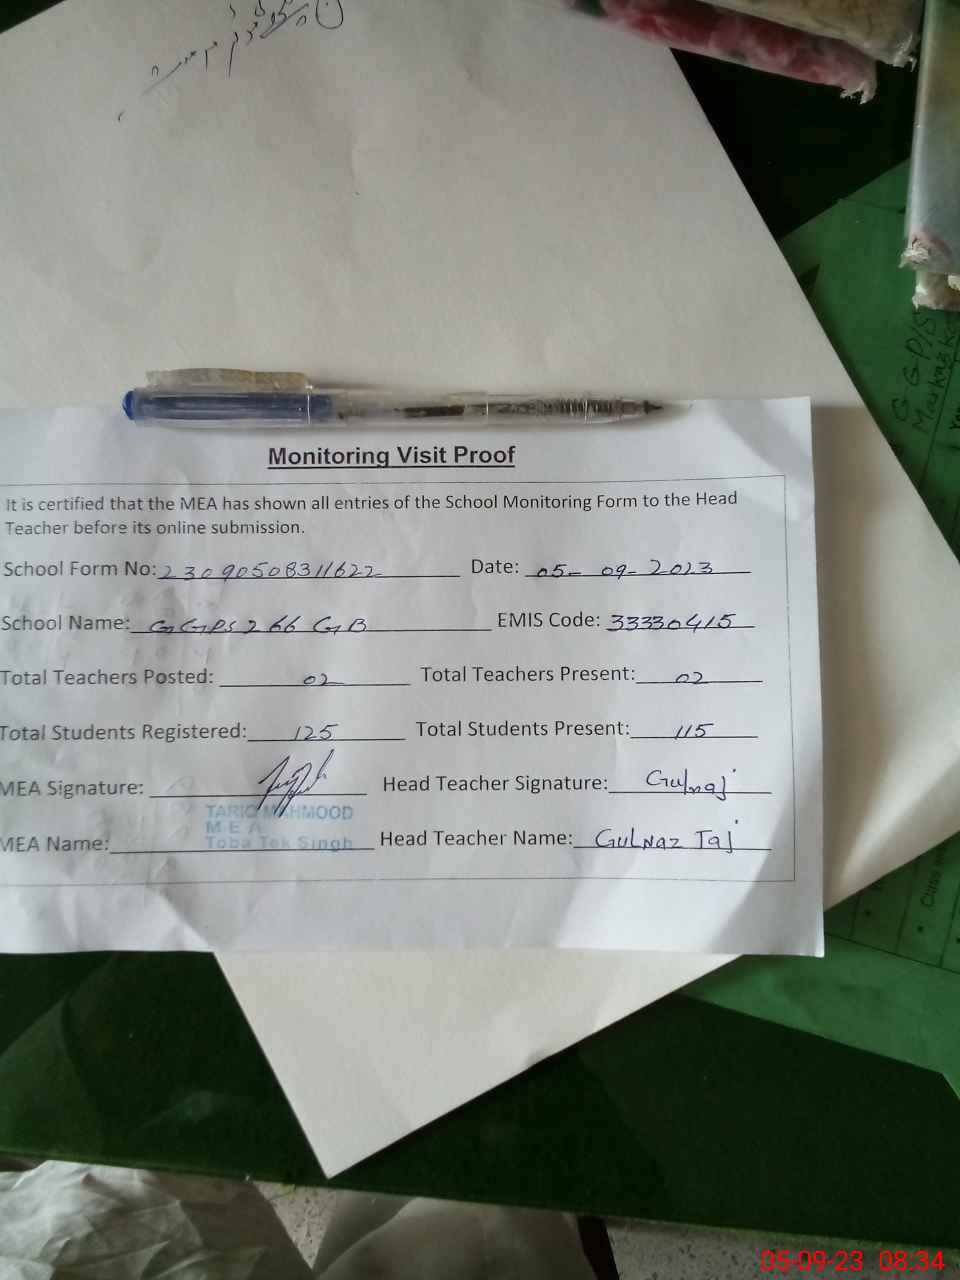 G GP/S
Monitoring Visit Proof
It is certified that the MEA has shown all entries of the School Monitoring Form to the Head
Teacher before its online submission.
School Form No: 23090508311622 Date: 05-09-2023
School Name: GGPS 266 GB EMIS Code: 33330415
Total Teachers Posted: 02 Total Teachers Present: 02
Total Students Registered: 125 Total Students Present: 115
MEA Signature: Head Teacher Signature: Gulnaj
TARIQ MAHMOOD
M E A
MEA Name: Toba Tek Singh Head Teacher Name: Gulnaz Taj
05-09-23 08:34